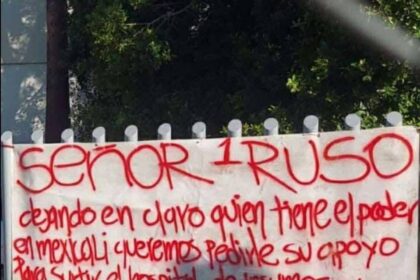 SEÑOR 1 RUSO
dejando en claro quien tiene el poder
en mexicali queremos pedirle su apoyo
Para surtir el hospital de